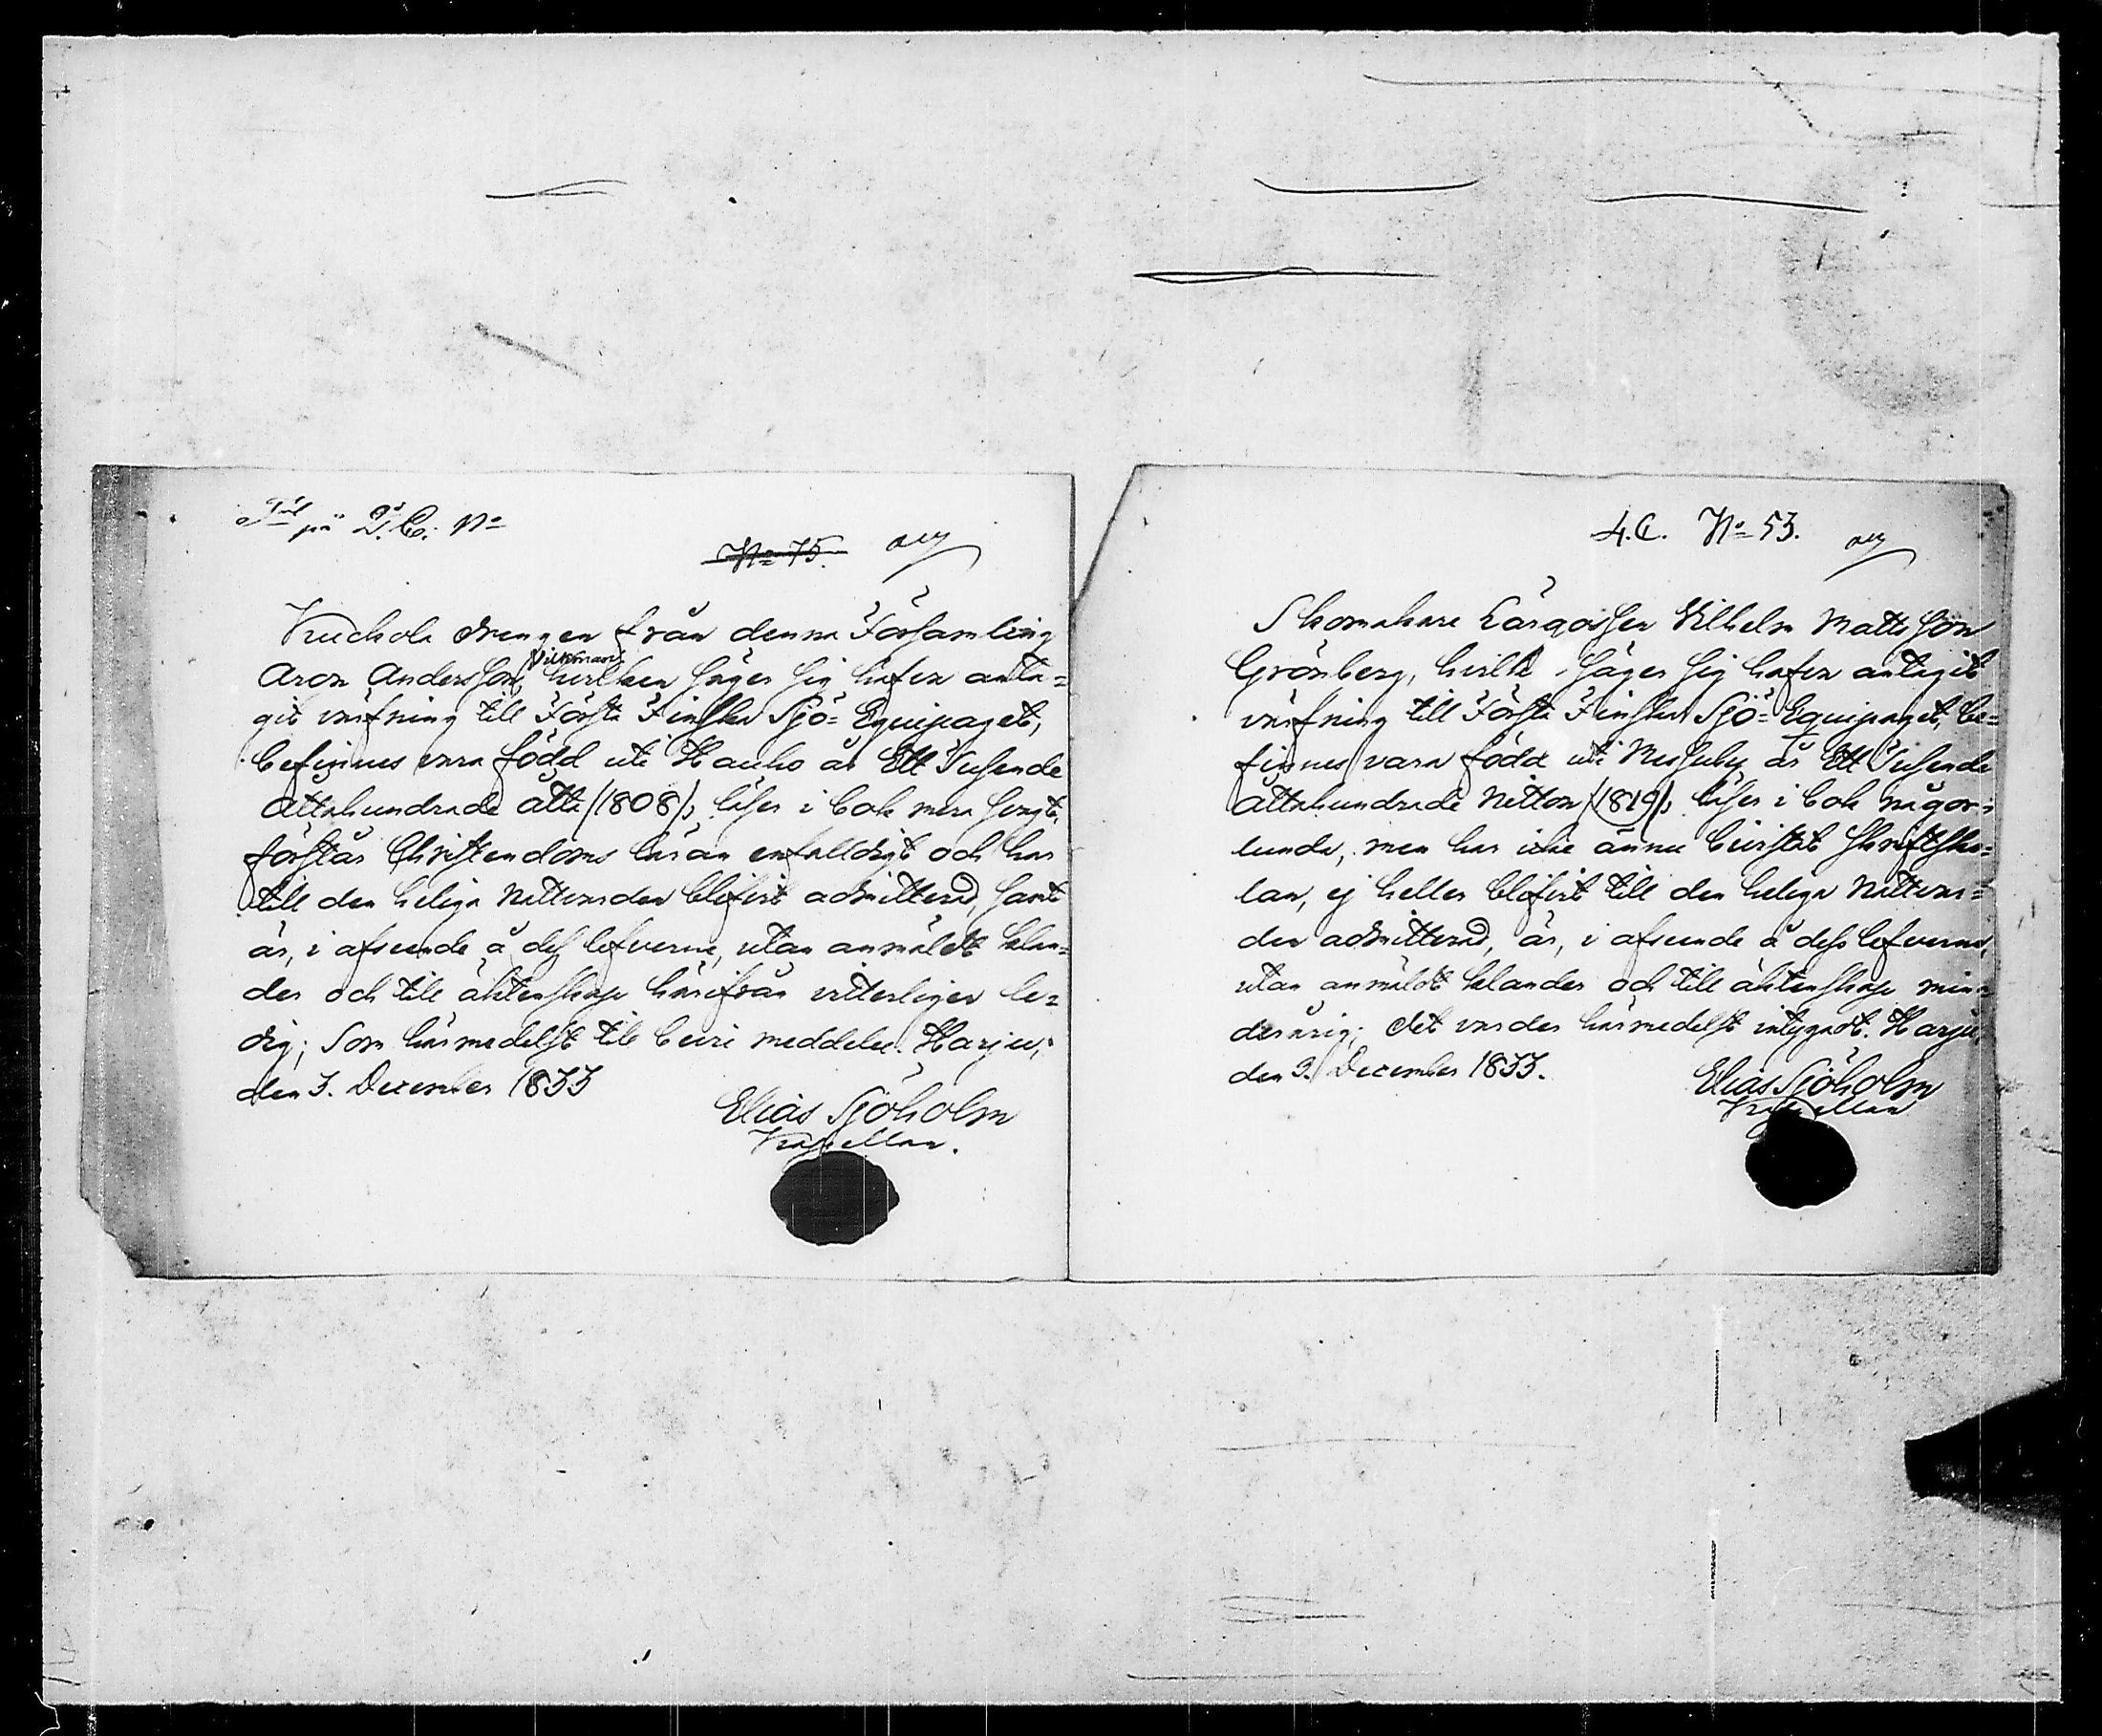 på 2. C. No
No 75.
Kuckola drengen från denna Församling
Vikman
Aron Andersson, hvilken säger sig hafva anta=
git värfning till Första Finska Sjö=Equipaget,
befinnes vara född uti Hauho år Ett Tusende
åttahundrade åtta (1808), läser i bok mera svagt,
förstår Christendoms läran enfalldigt och har
till den heliga Nattvarden blifvit admitterad, samt
är, i afseende å dess lefverne, utan anmäldt klan=
der och till äktenskap härifrån vitterligen le=
dig; Som härmedelst till bevis meddelas. Harju,
den 3. December 1833
Elias Sjöholm
Kapellan.
4. C. No 53.
Skomakare Lärgossen Vilhelm Mattsson
Grönberg, hvilke säger sig hafva antagit
värfning till Första Finska Sjö=Equipaget, be=
finnes vara född uti Messuby år Ett Tusende
åttahundrade Nitton (1819), läser i bok någor=
lunda, men har icke ännu bevistat Skriftsko=
lan, ej heller blifvit till den heliga Nattvar=
den admitterad, är, i afseende å dess lefverne,
utan anmäldt klander och till äktenskap min=
derårig; det varder härmedelst intygadt. Harju,
den 3. December 1833.
Elias Sjöholm
Kapellan